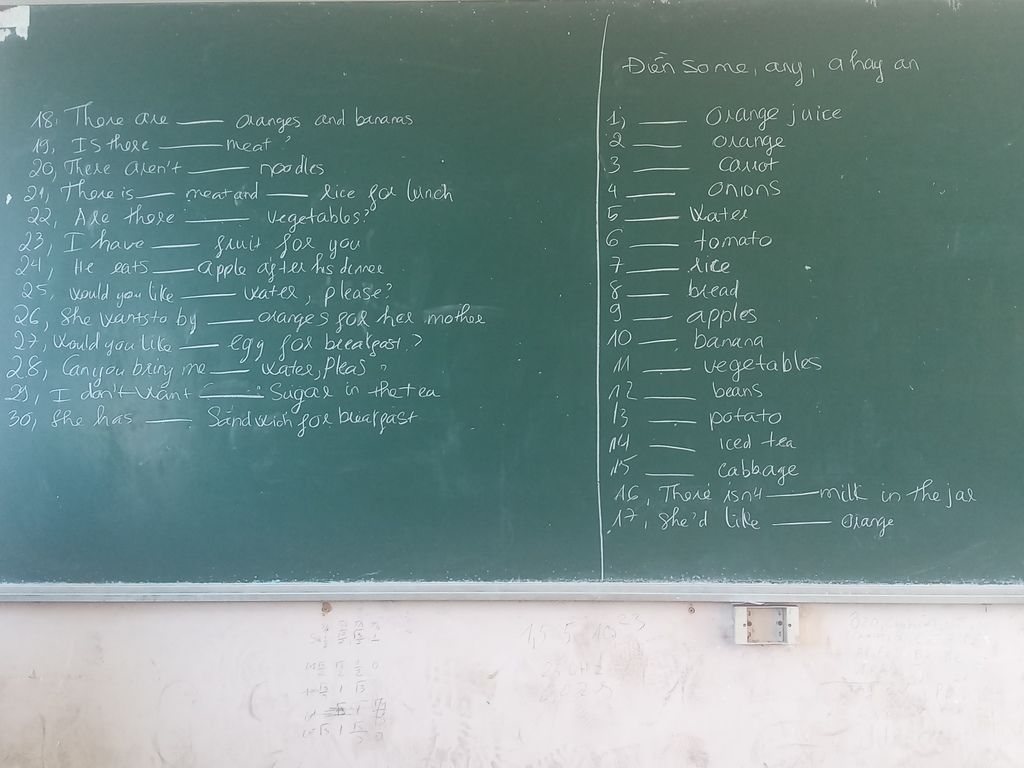 Điền some, any, a hay an
1, ___ orange juice
2 ___ orange
3 ___ carrot
4 ___ onions
5 ___ water
6 ___ tomato
7 ___ rice
8 ___ bread
9 ___ apples
10 ___ banana
11 ___ vegetables
12 ___ beans
13 ___ potato
14 ___ iced tea
15 ___ cabbage
16, There isn't ___ milk in the jar
17, She'd like ___ orange
18, There are ___ oranges and bananas
19, Is there ___ meat?
20, There aren't ___ noodles
21, There is ___ meat and ___ rice for lunch
22, Are there ___ vegetables?
23, I have ___ fruit for you
24, He eats ___ apple after his dinner
25, Would you like ___ water, please?
26, She wants to by ___ oranges for her mother
27, Would you like ___ egg for breakfast?
28, Can you bring me ___ water, pleas?
29, I don't want ___ sugar in the tea
30, She has ___ Sandwich for breakfast